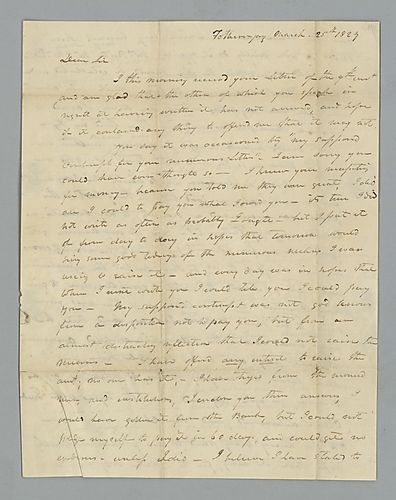 March 25th 1829
Dear Sir
I this morning received your Letter of the 9th inst
and am glad that the other of which you speak in
it having written it has not arrived, and hope
if it contained any thing to offend me that it may not
You say it was occasioned by "my supposed
contempt for your numerous Letters" I am sorry you
could have ever thought so — I knew your necessities
for money because you told me they were great, I did
all I could to pay you what I owed you — it's true I did
not write as often as probably I ought — but I put it
off from day to day in hopes that tomorrow would
bring some good tidings of the numerous means I was
using to raise it — and every day was in hopes that
when I wrote to you I could tell you I could pay
you — My supposed contempt was not god knows
from a disposition not to pay you, but from an
almost distracting reflection that I could not raise the
means — I have offered any interest to raise the
no one has it, — I have tried even the monied
men and institutions, & render you their answers, I
could have gotten it from other Banks, but I could not
myself to pay it in 60 days, and could get no
unless I did — I believe I have stated to